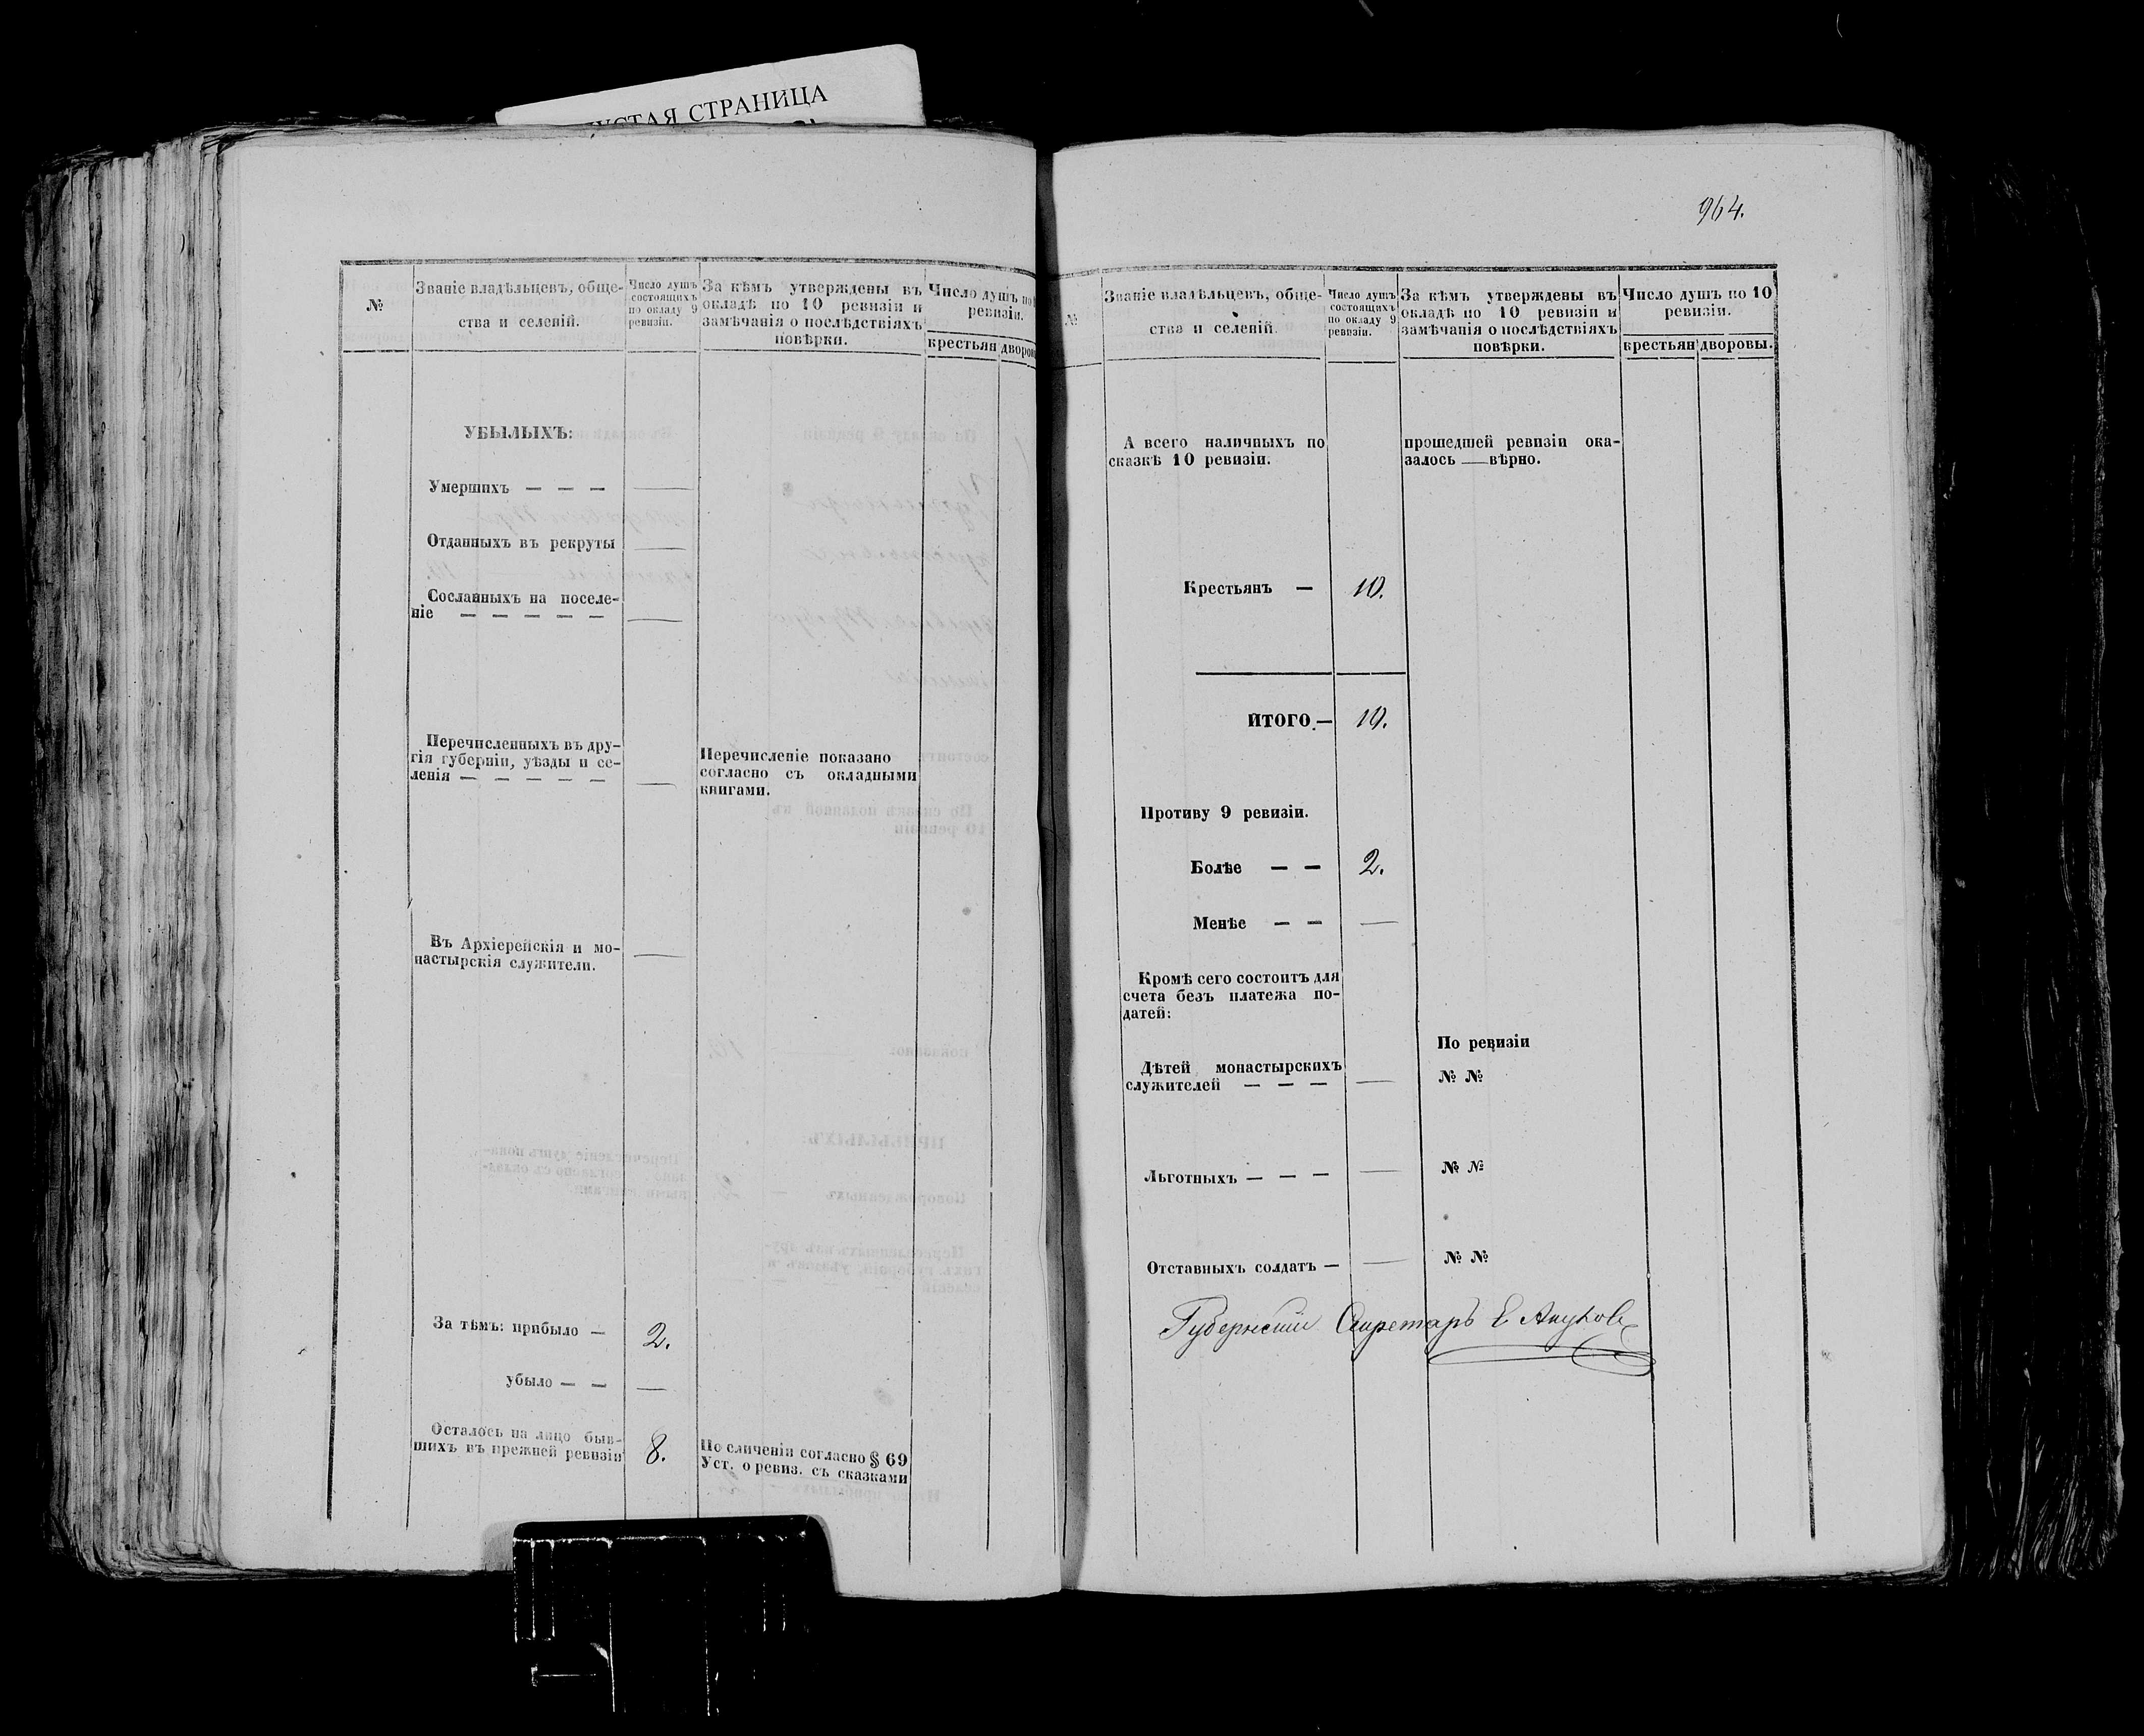 СТАЯ СТРАНИЦА
№
Званіе владѣльцевъ, обще-
ства и селеній.
Число душъ
состоящихъ
по окладу 9
ревизіи.
За кѣмъ утверждены въ
окладѣ по 10 ревизіи и
замѣчанія о послѣдствіяхъ
повѣрки.
Число душъ по
ревизіи.
крестьян
дворов
УБЫЛЫХЪ:
Умершихъ — — —
Отданныхъ въ рекруты
Сосланныхъ на поселе-
ніе — — — — —
Перечисленныхъ въ дру-
гія губерніи, уѣзды и се-
ленія — — — — —
Перечисленіе показано
согласно съ окладными
книгами.
Въ Архіерейскія и мо-
настырскія служители.
За тѣмъ: прибыло — 2.
убыло — —
Осталось на лицо быв-
шихъ въ прежней ревизіи 8.
По сличеніи согласно § 69
Уст. о ревиз. съ сказками
964.
№
Званіе владѣльцевъ, обще-
ства и селеній.
Число душъ
состоящихъ
по окладу 9
ревизіи.
За кѣмъ утверждены въ
окладѣ по 10 ревизіи и
замѣчанія о послѣдствіяхъ
повѣрки.
Число душъ по 10
ревизіи.
крестьян
дворовы.
А всего наличныхъ по
сказкѣ 10 ревизіи.
прошедшей ревизіи ока-
залось — вѣрно.
Крестьянъ — 10.
ИТОГО — 10.
Противу 9 ревизіи.
Болѣе — — 2.
Менѣе — —
Кромѣ сего состоитъ для
счета безъ платежа по-
датей:
По ревизіи
Дѣтей монастырскихъ
служителей — — —
№ №
Льготныхъ — — —
№ №
Отставныхъ солдатъ —
№ №
Губернскій Секретарь Е